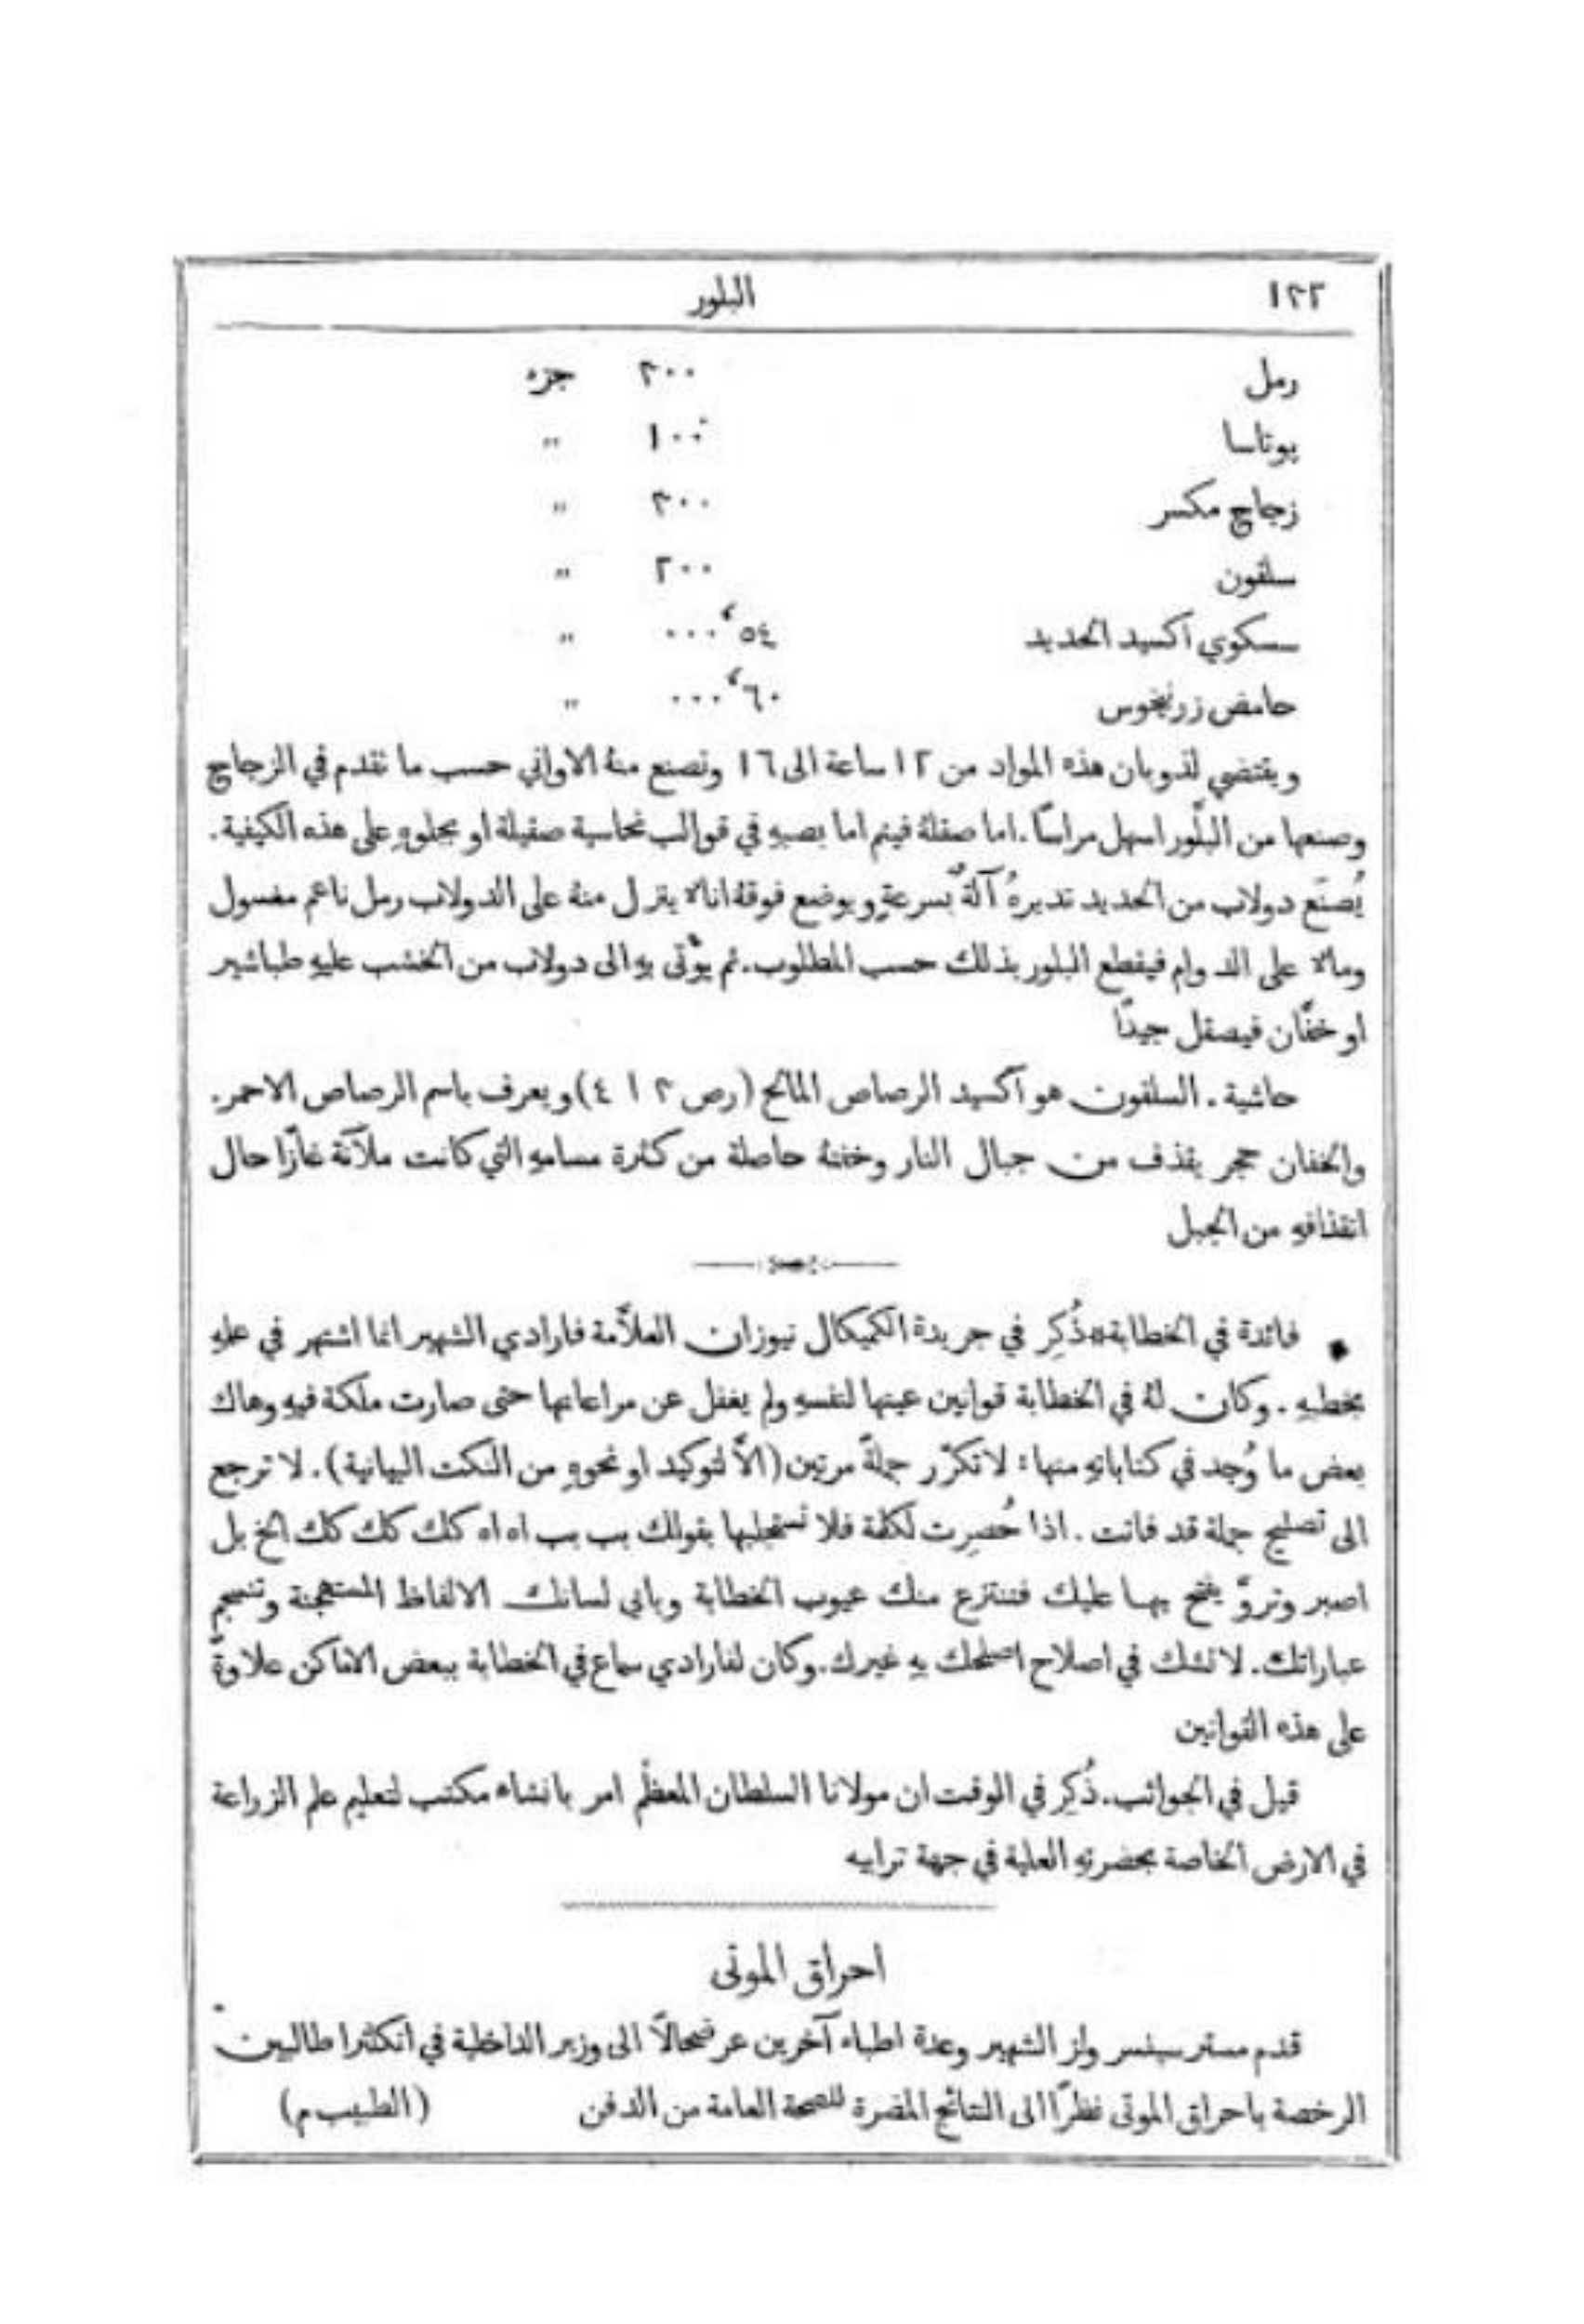 ١٢٢ البلور
رمل ٣٠٠ جزء
بوتاسا ١٠٠ "
زجاج مكسر ٣٠٠ "
سلقون ٢٠٠ "
سسكوي اكسيد الحديد ٠٠٠،٥٤ "
حامض زرنيخوس ٠٠٠،٦٠ "
ويقتضي لذوبان هذه المواد من ١٢ ساعة الى ١٦ وتصنع منهُ الاواني حسب ما تقدم في الزجاج
وصنعها من البلّور اسهل مراسًا. اما صقلهُ فيتم اما بصبهِ في قوالب نحاسية صقيلة او بجلوهِ على هذه الكيفية.
يُصنَع دولاب من الحديد تديرهُ آلةٌ بسرعةٍ ويوضع فوقهُ اناءٌ ينزل منهُ على الدولاب رمل ناعم مغسول
وماءٌ على الدوام فيقطع البلور بذلك حسب المطلوب. ثم يوَّتى بهِ الى دولاب من الخشب عليهِ طباشير
او خفَّان فيصقل جيدًا
حاشية. السلقون هو اكسيد الرصاص المالح (رص ٣ ا ٤) ويعرف باسم الرصاص الاحمر.
والخفان حجر يقذف من جبال النار وخفتهُ حاصلة من كثرة مسامهِ التي كانت ملآنة غازًا حال
انقذافهِ من الجبل
* فائدة في الخطابة* ذُكِر في جريدة الكميكال نيوز ان العلاَّمة فارادي الشهير انما اشتهر في علمهِ
بخطبهِ. وكان لهُ في الخطابة قوانين عينها لنفسهِ ولم يغفل عن مراعاتها حتى صارت ملكة فيهِ وهاك
بعض ما وُجد في كتاباتهِ منها: لا تكرّر جملةً مرتين (الاَّ لتوكيد او نحوهِ من النكت البيانية). لا ترجع
الى تصليح جملة قد فاتت. اذا حُصِرت لكلمة فلا تستجلبها بقولك بب بب اه اه كك كك كك الخ بل
اصبر وتروَّ يفتح بها عليك فتنتزع منك عيوب الخطابة ويابى لسانك الالفاظ المستهجنة وتنسجم
عباراتك. لا تشك في اصلاح اصلحك بهِ غيرك. وكان لفارادي سماع في الخطابة ببعض الاماكن علاوةً
على هذه القوانين
قيل في الجوائب. ذُكِر في الوقت ان مولانا السلطان المعظَّم امر بانشاء مكتب لتعليم علم الزراعة
في الارض الخاصة بحضرتهِ العلية في جهة ترابيه
احراق الموتى
قدم مستر سبنسر ولز الشهير وعدة اطباء آخرين عرضحالاً الى وزير الداخلية في انكلترا طالبين
الرخصة باحراق الموتى نظرًا الى النتائج المضرة للصحة العامة من الدفن (الطبيب م)